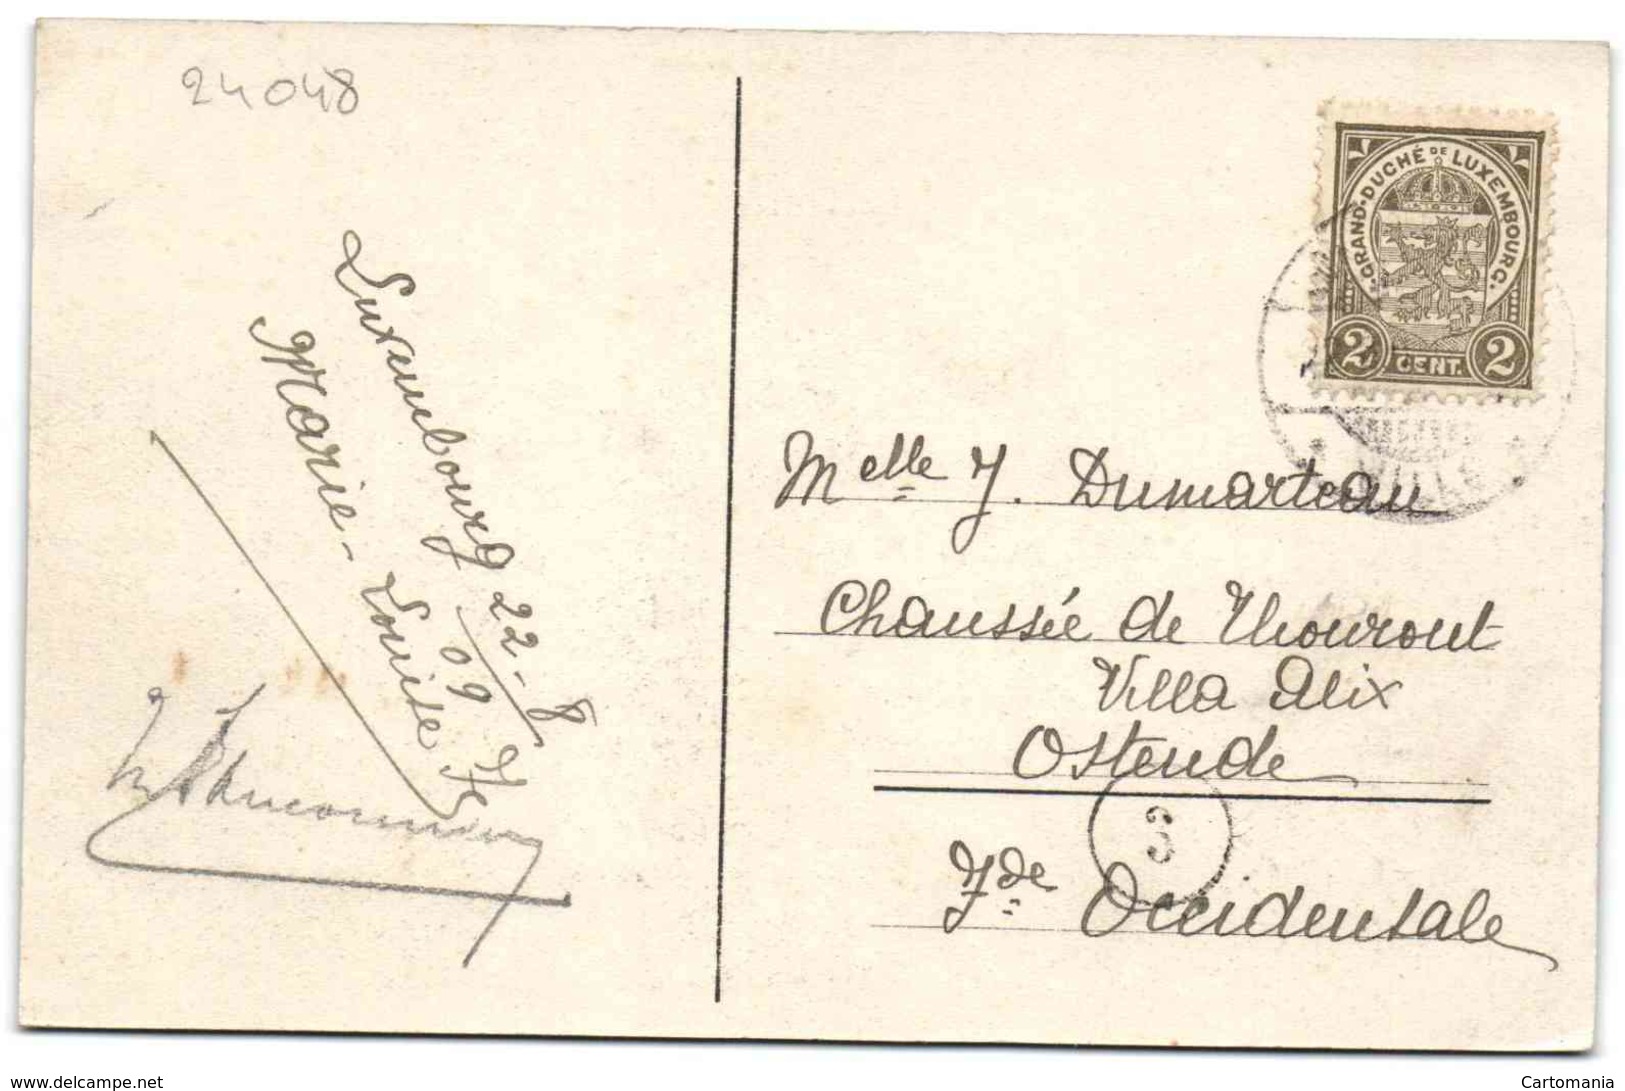 24048
Luxembourg 22-8
09
Marie-Louise
GRAND-DUCHÉ DE LUXEMBOURG.
2 CENT. 2
Melle J. Dumarteau
Chaussée de Thourout
Villa Alix
Ostende
3
Fde Occidentale
www.delcampe.net
Cartomania